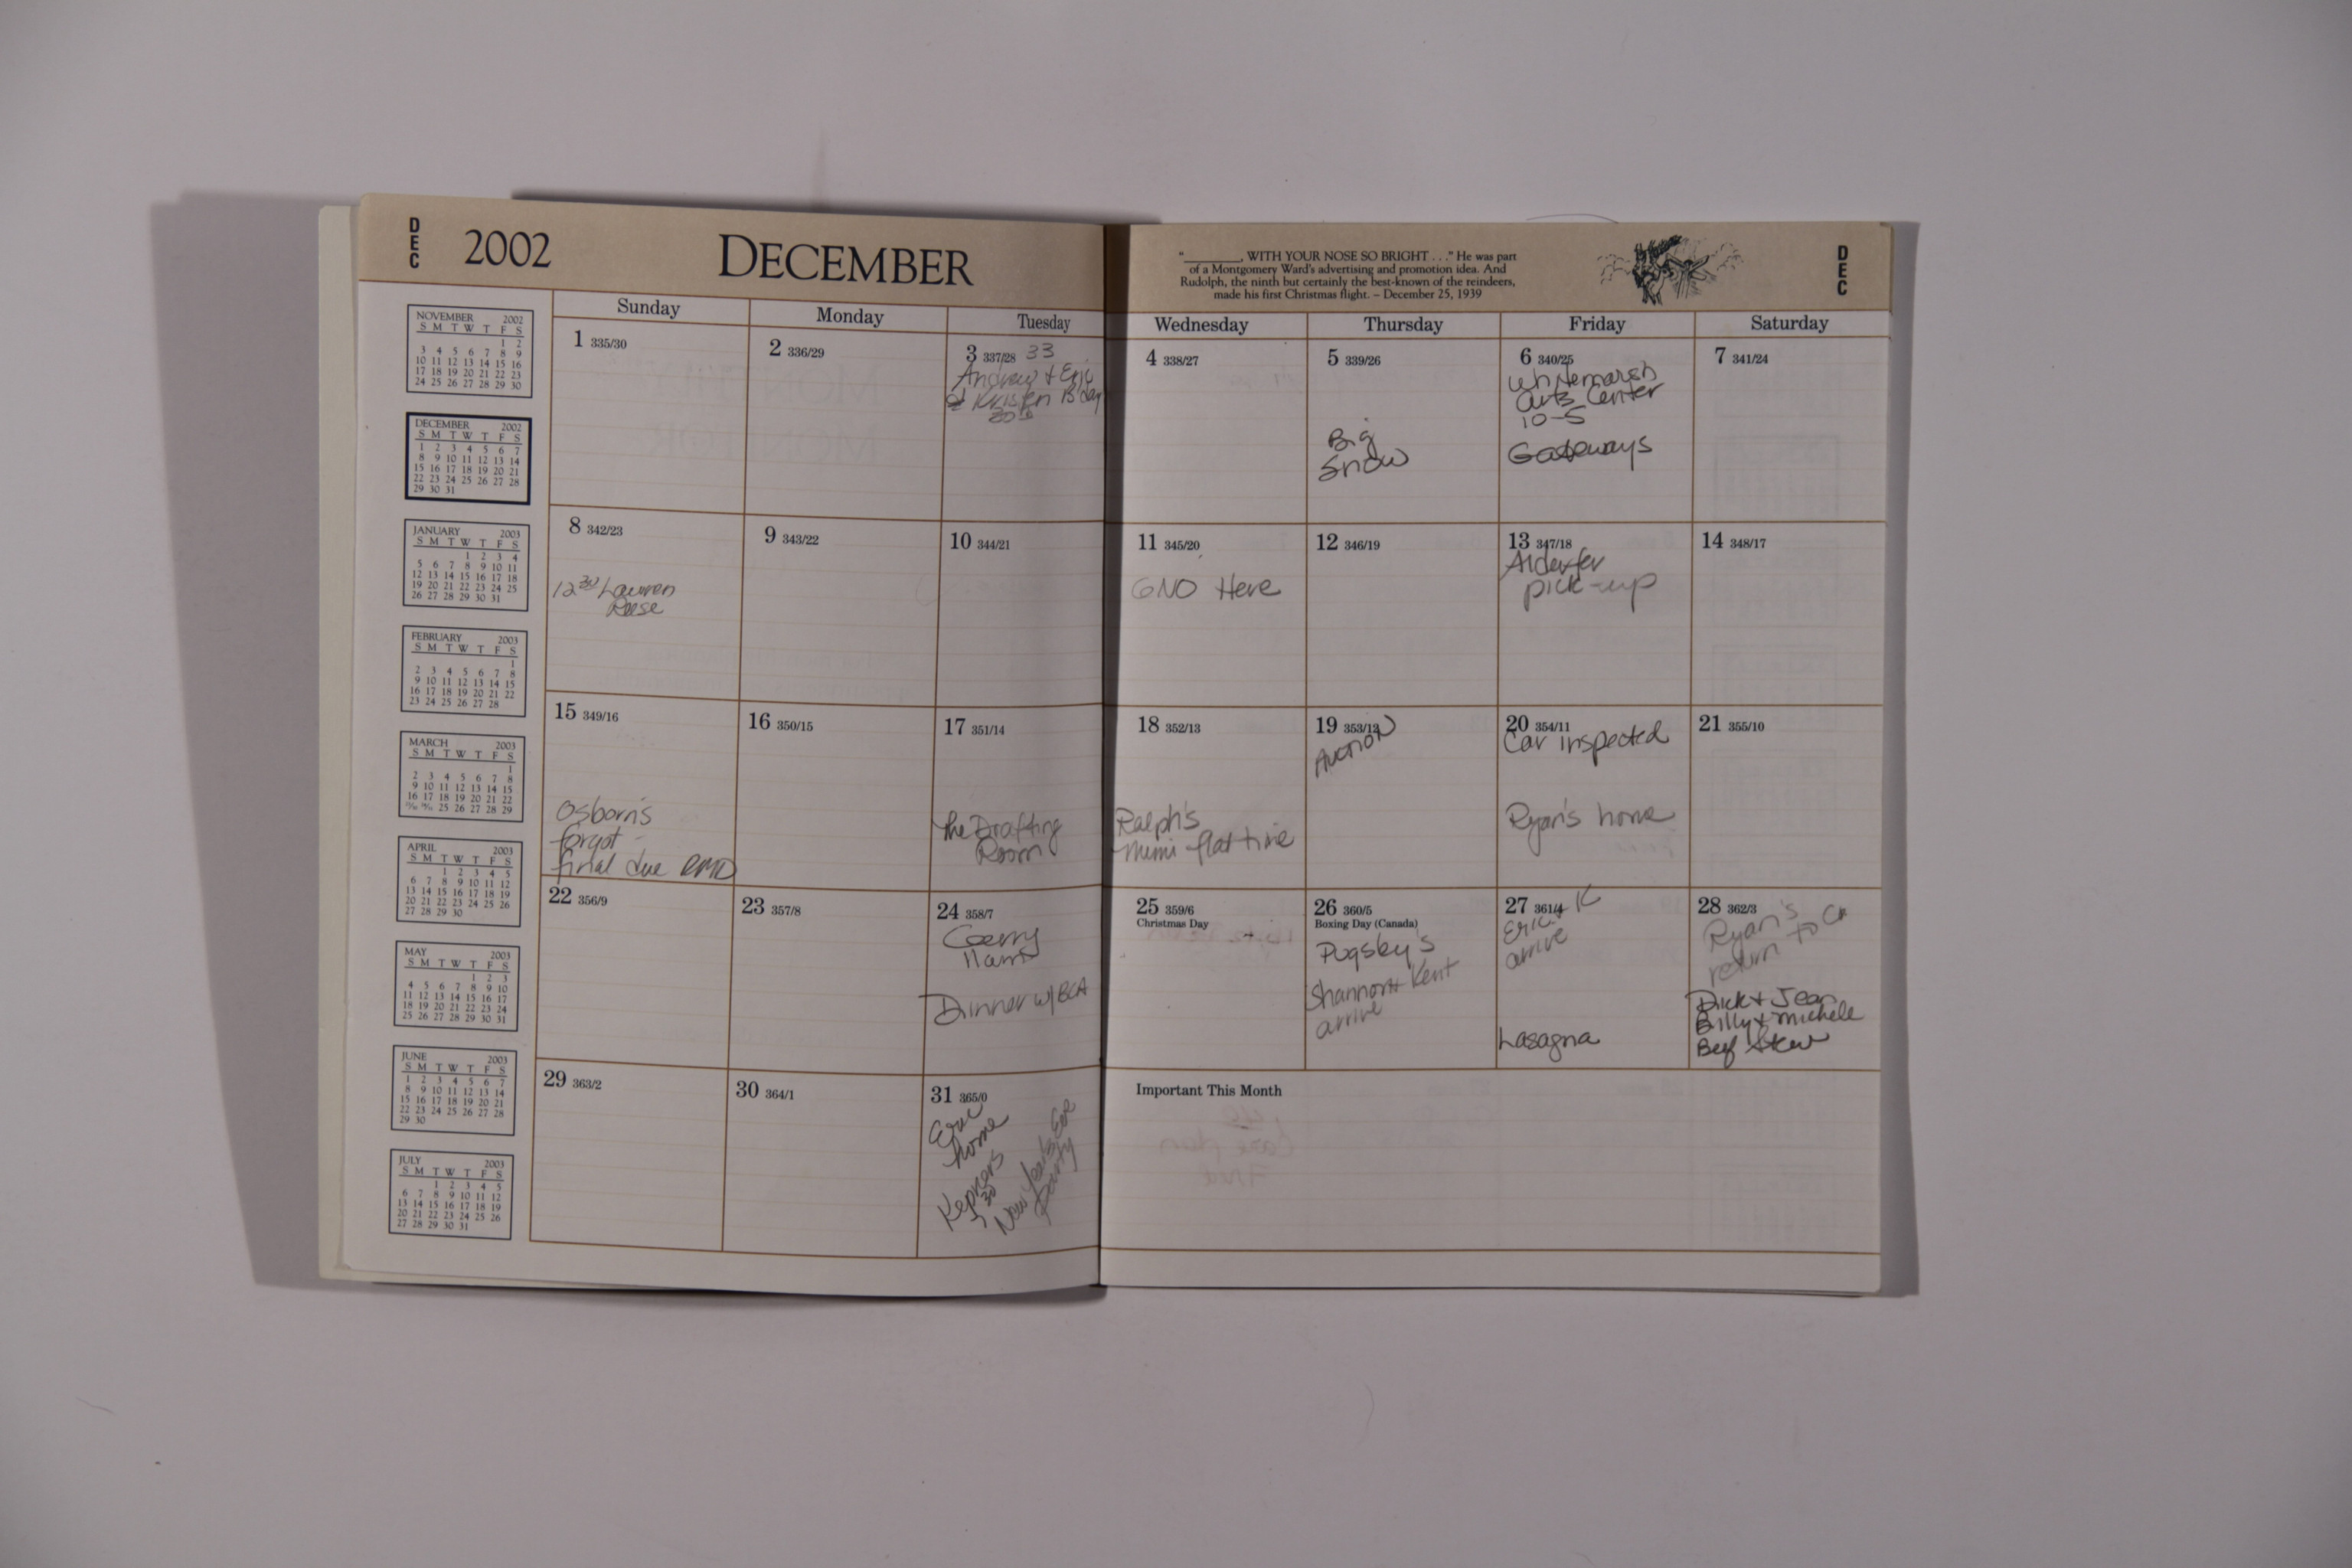 DEC
2002
DECEMBER
"______, WITH YOUR NOSE SO BRIGHT . . ." He was part
of a Montgomery Ward's advertising and promotion idea. And
Rudolph, the ninth but certainly the best-known of the reindeers,
made his first Christmas flight. – December 25, 1939
DEC
NOVEMBER 2002
S M T W T F S
1 2
3 4 5 6 7 8 9
10 11 12 13 14 15 16
17 18 19 20 21 22 23
24 25 26 27 28 29 30
DECEMBER 2002
S M T W T F S
1 2 3 4 5 6 7
8 9 10 11 12 13 14
15 16 17 18 19 20 21
22 23 24 25 26 27 28
29 30 31
JANUARY 2003
S M T W T F S
1 2 3 4
5 6 7 8 9 10 11
12 13 14 15 16 17 18
19 20 21 22 23 24 25
26 27 28 29 30 31
FEBRUARY 2003
S M T W T F S
1
2 3 4 5 6 7 8
9 10 11 12 13 14 15
16 17 18 19 20 21 22
23 24 25 26 27 28
MARCH 2003
S M T W T F S
1
2 3 4 5 6 7 8
9 10 11 12 13 14 15
16 17 18 19 20 21 22
23/30 24/31 25 26 27 28 29
APRIL 2003
S M T W T F S
1 2 3 4 5
6 7 8 9 10 11 12
13 14 15 16 17 18 19
20 21 22 23 24 25 26
27 28 29 30
MAY 2003
S M T W T F S
1 2 3
4 5 6 7 8 9 10
11 12 13 14 15 16 17
18 19 20 21 22 23 24
25 26 27 28 29 30 31
JUNE 2003
S M T W T F S
1 2 3 4 5 6 7
8 9 10 11 12 13 14
15 16 17 18 19 20 21
22 23 24 25 26 27 28
29 30
JULY 2003
S M T W T F S
1 2 3 4 5
6 7 8 9 10 11 12
13 14 15 16 17 18 19
20 21 22 23 24 25 26
27 28 29 30 31
Sunday Monday Tuesday Wednesday Thursday Friday Saturday
1 335/30
2 336/29
3 337/28 33
Andrew + Eric
Kristen B'day
4 338/27
5 339/26
Big
Snow
6 340/25
Whitemarsh
Arts Center
10-5
Gateways
7 341/24
8 342/23
12 30 Lauren
Reese
9 343/22
10 344/21
11 345/20
GNO Here
12 346/19
13 347/18
Alderfer
pick-up
14 348/17
15 349/16
Osborn's
forgot
final due RMD
16 350/15
17 351/14
The Drafting
Room
18 352/13
Ralph's
Mimi flat tire
19 353/12
Auction
20 354/11
Car inspected
Ryan's home
21 355/10
22 356/9
23 357/8
24 358/7
Ham
Dinner w/ BCA
25 359/6
Christmas Day
26 360/5
Boxing Day (Canada)
Pugsley's
Shannon + Kent
arrive
27 361/4
Eric + K
arrive
Lasagna
28 362/3
Ryan's
return to CA
Dick + Jean
Billy + Michele
Beef Stew
29 363/2
30 364/1
31 365/0
Eric
home
Kepners
7 30
New Year's Eve
Party
Important This Month